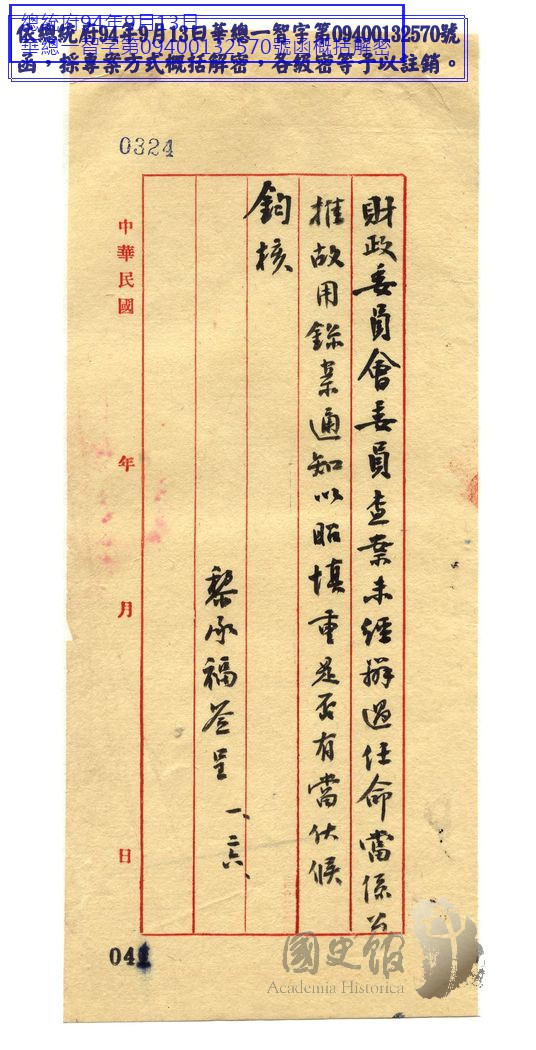 依總統府94年9月13日華總一智字第09400132570號
函，採專案方式概括解密，各級密等予以註銷。
總統府94年9月13日
華總一智字第09400132570號函概括解密
0324
財政委員會委員查案未經辦過任命當係公
推故用錄案通知以昭慎重是否有當伏候
鈞核
黎承福簽呈 一、二六、
中華民國 年 月 日
041
國史館
Academia Historica